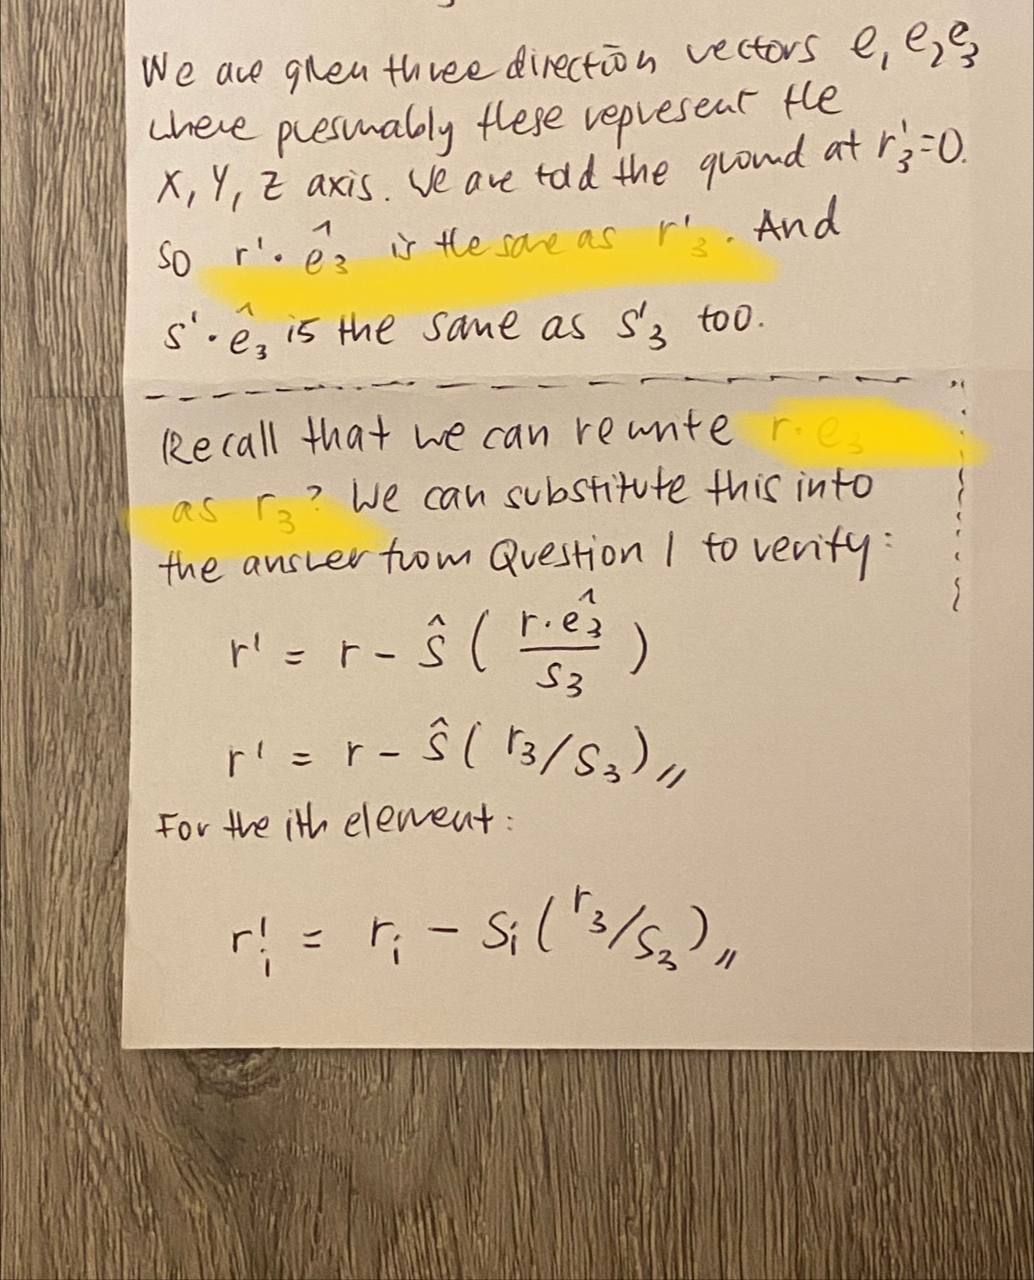 We are given three direction vectors e₁ e₂ e₃
where presumably these represent the
X, Y, Z axis. We are told the ground at r'₃=0.
so r'· ê₃ is the same as r'₃. And
s'· ê₃ is the same as s'₃ too.
Recall that we can rewrite r·e₃
as r₃? We can substitute this into
the answer from Question 1 to verify:
r' = r - ŝ ( r·ê₃ / s₃ )
r' = r - ŝ ( r₃/s₃ ) //
For the ith element:
r'ᵢ = rᵢ - sᵢ ( r₃/s₃ ) //